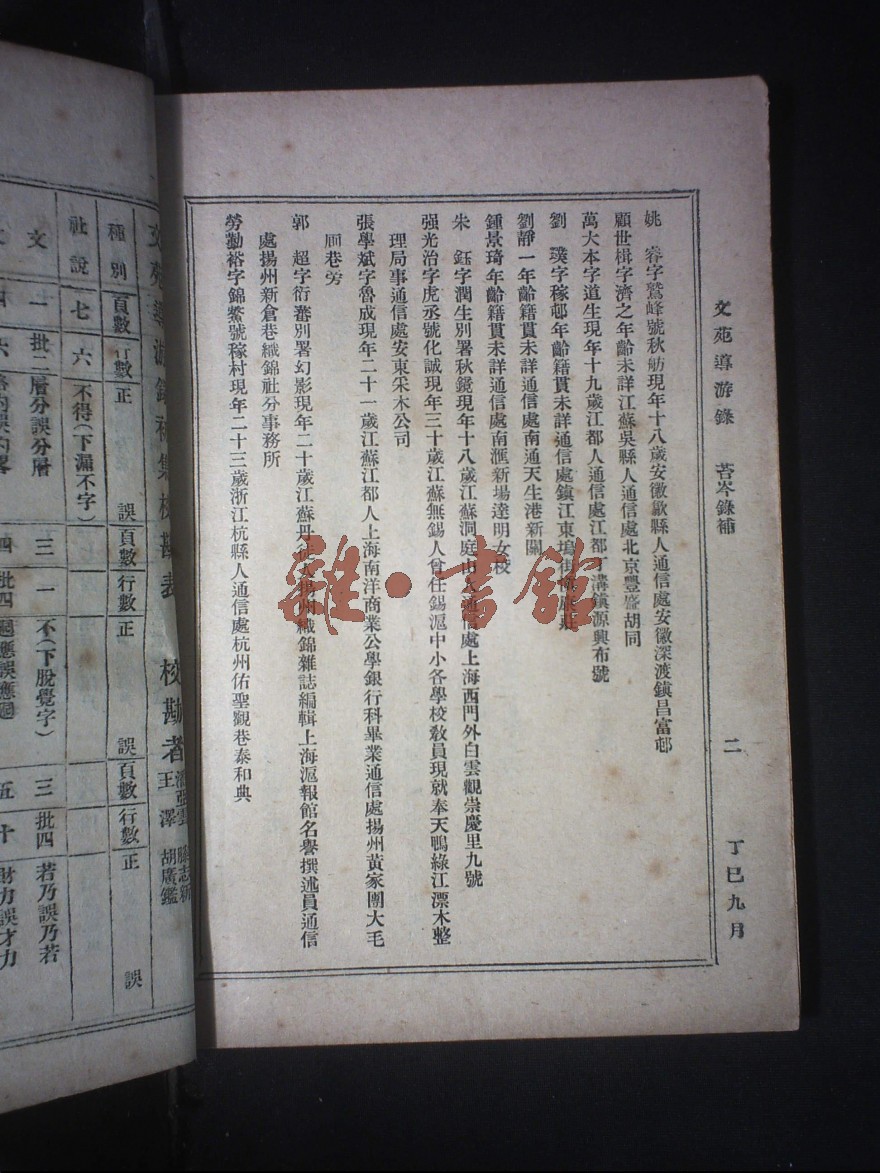 文苑導游錄　苔岑錄補　二　丁巳九月
姚　睿字鷲峰號秋舫現年十八歲安徽歙縣人通信處安徽深渡鎮昌富邨
顧世楫字濟之年齡未詳江蘇吳縣人通信處北京豐盛胡同
萬大本字道生現年十九歲江都人通信處江都丁溝鎮源興布號
劉　璞字稼邨年齡籍貫未詳通信處鎮江東塢街
劉靜一年齡籍貫未詳通信處南通天生港新關
鍾景琦年齡籍貫未詳通信處南滙新場達明女校
朱　鈺字潤生別署秋鏡現年十八歲江蘇洞庭山人通信處上海西門外白雲觀崇慶里九號
强光治字虎丞號化誠現年三十歲江蘇無錫人曾任錫滬中小各學校敎員現就奉天鴨綠江漂木整
理局事通信處安東采木公司
張學斌字魯成現年二十一歲江蘇江都人上海南洋商業公學銀行科畢業通信處揚州黃家園大毛
厠巷旁
郭　超字衍蕃別署幻影現年二十歲江蘇丹徒人揚州織錦雜誌編輯上海滬報館名譽撰述員通信
處揚州新倉巷織錦社分事務所
勞勤裕字錦鰲號稼村現年二十三歲浙江杭縣人通信處杭州佑聖觀巷泰和典
雜·書館
文苑導游錄　集校勘表　校勘者　王　澤　胡廣鑑
種別　頁數　行數　正　誤　頁數　行數　正　誤　頁數　行數　正　誤
社說　七　六　不得(下漏不字)
文　一　批二　層分誤分層　三　一　不(下脫覺字)　三　批四　若乃誤乃若
四　六　四　批四　題應誤應題　五　十　財力誤才力